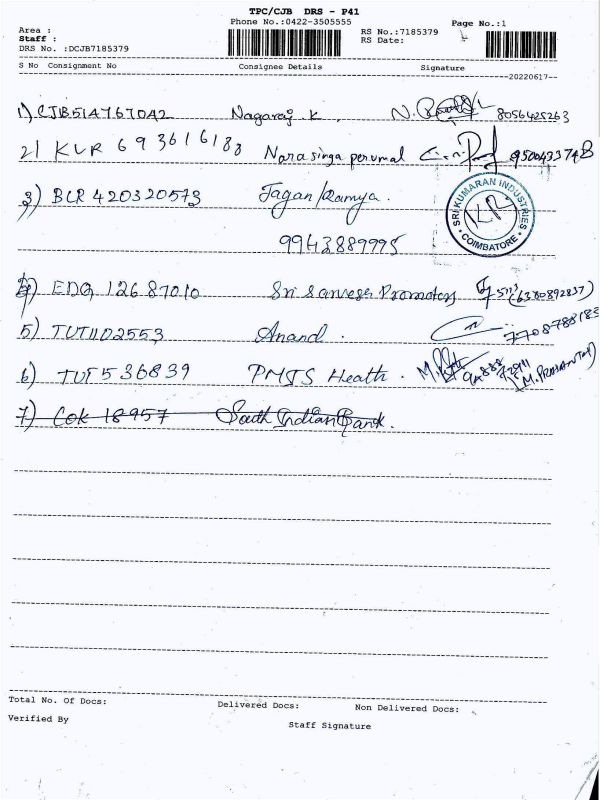 TPC/CJB DRS - P41
Phone No.:0422-3505555
Page No.:1
Area :
Staff :
DRS No. :DCJB7185379
RS No.:7185379
RS Date:
S No Consignment No Consignee Details Signature
20220617
1) CJB514767042 Nagaraj . K . 8056425263
2) KUR 693616183 Narasinga perumal
3) BLR 420320573 Jagan/Ramya .
9943889995
SRI KUMARAN INDUSTRIES
COIMBATORE
4) EDQ 12687010 Sri Sarvesh Promoters (6380892837)
5) TUT1102553 Anand . 7708788183
6) TUT536839 PMJS Health .
7) COK 18957 South Indian Bank .
Total No. Of Docs: Delivered Docs: Non Delivered Docs:
Verified By Staff Signature